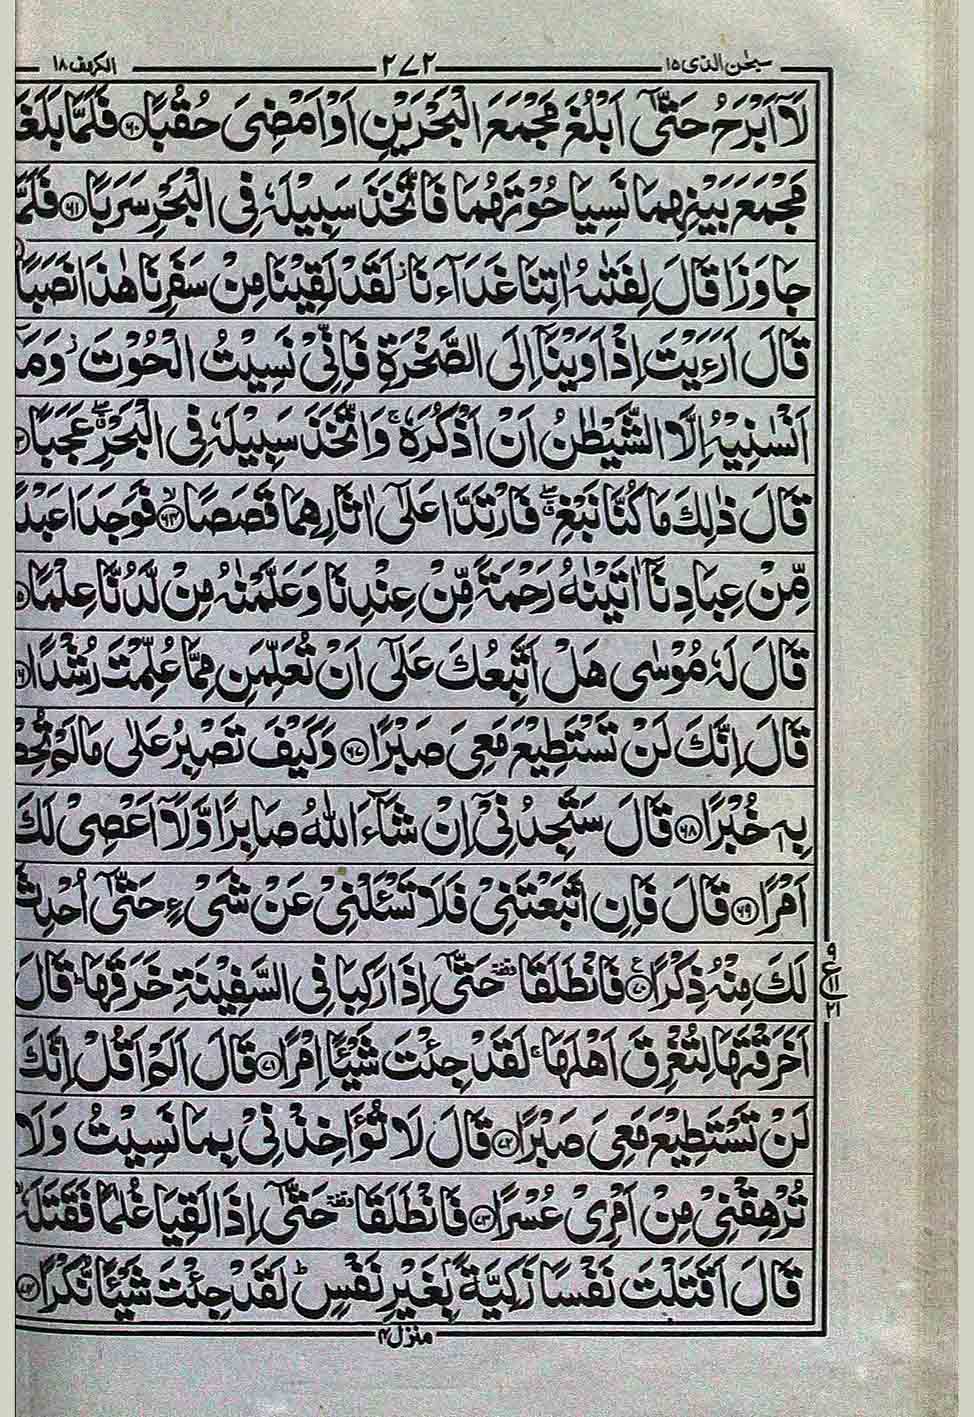 سبحٰن الذی ۱۵ ۲۷۲ الکهف ۱۸
لَاۤ اَبْرَحُ حَتّٰۤی اَبْلُغَ مَجْمَعَ الْبَحْرَیْنِ اَوْ اَمْضِیَ حُقُبًا ﴿۶۰﴾ فَلَمَّا بَلَغَا
مَجْمَعَ بَیْنِهِمَا نَسِیَا حُوْتَهُمَا فَاتَّخَذَ سَبِیْلَهٗ فِی الْبَحْرِ سَرَبًا ﴿۶۱﴾ فَلَمَّا
جَاوَزَا قَالَ لِفَتٰىهُ اٰتِنَا غَدَآءَنَا ؗ لَقَدْ لَقِیْنَا مِنْ سَفَرِنَا هٰذَا نَصَبًا
قَالَ اَرَءَیْتَ اِذْ اَوَیْنَاۤ اِلَی الصَّخْرَةِ فَاِنِّیْ نَسِیْتُ الْحُوْتَ ؗ وَمَاۤ
اَنْسٰنِیْهُ اِلَّا الشَّیْطٰنُ اَنْ اَذْكُرَهٗ ۚ وَاتَّخَذَ سَبِیْلَهٗ فِی الْبَحْرِ ۖۗ عَجَبًا
قَالَ ذٰلِكَ مَا كُنَّا نَبْغِ ۖۗ فَارْتَدَّا عَلٰۤی اٰثَارِهِمَا قَصَصًا ﴿۶۴﴾ فَوَجَدَا عَبْدًا
مِّنْ عِبَادِنَاۤ اٰتَیْنٰهُ رَحْمَةً مِّنْ عِنْدِنَا وَعَلَّمْنٰهُ مِنْ لَّدُنَّا عِلْمًا
قَالَ لَهٗ مُوْسٰی هَلْ اَتَّبِعُكَ عَلٰۤی اَنْ تُعَلِّمَنِ مِمَّا عُلِّمْتَ رُشْدًا
قَالَ اِنَّكَ لَنْ تَسْتَطِیْعَ مَعِیَ صَبْرًا ﴿۶۷﴾ وَكَیْفَ تَصْبِرُ عَلٰی مَا لَمْ تُحِطْ
بِهٖ خُبْرًا ﴿۶۸﴾ قَالَ سَتَجِدُنِیْۤ اِنْ شَآءَ اللّٰهُ صَابِرًا وَّلَاۤ اَعْصِیْ لَكَ
اَمْرًا ﴿۶۹﴾ قَالَ فَاِنِ اتَّبَعْتَنِیْ فَلَا تَسْـَٔلْنِیْ عَنْ شَیْءٍ حَتّٰۤی اُحْدِثَ
لَكَ مِنْهُ ذِكْرًا ﴿۷۰﴾ فَانْطَلَقَا ۥ حَتّٰۤی اِذَا رَكِبَا فِی السَّفِیْنَةِ خَرَقَهَا ؕ قَالَ
۹ ع ۱۱ ۲۱
اَخَرَقْتَهَا لِتُغْرِقَ اَهْلَهَا ۚ لَقَدْ جِئْتَ شَیْـًٔا اِمْرًا ﴿۷۱﴾ قَالَ اَلَمْ اَقُلْ اِنَّكَ
لَنْ تَسْتَطِیْعَ مَعِیَ صَبْرًا ﴿۷۲﴾ قَالَ لَا تُؤَاخِذْنِیْ بِمَا نَسِیْتُ وَلَا
تُرْهِقْنِیْ مِنْ اَمْرِیْ عُسْرًا ﴿۷۳﴾ فَانْطَلَقَا ۥ حَتّٰۤی اِذَا لَقِیَا غُلٰمًا فَقَتَلَهٗ
قَالَ اَقَتَلْتَ نَفْسًا زَكِیَّةًۢ بِغَیْرِ نَفْسٍ ؕ لَقَدْ جِئْتَ شَیْـًٔا نُّكْرًا ﴿۷۴﴾
منزل ۴